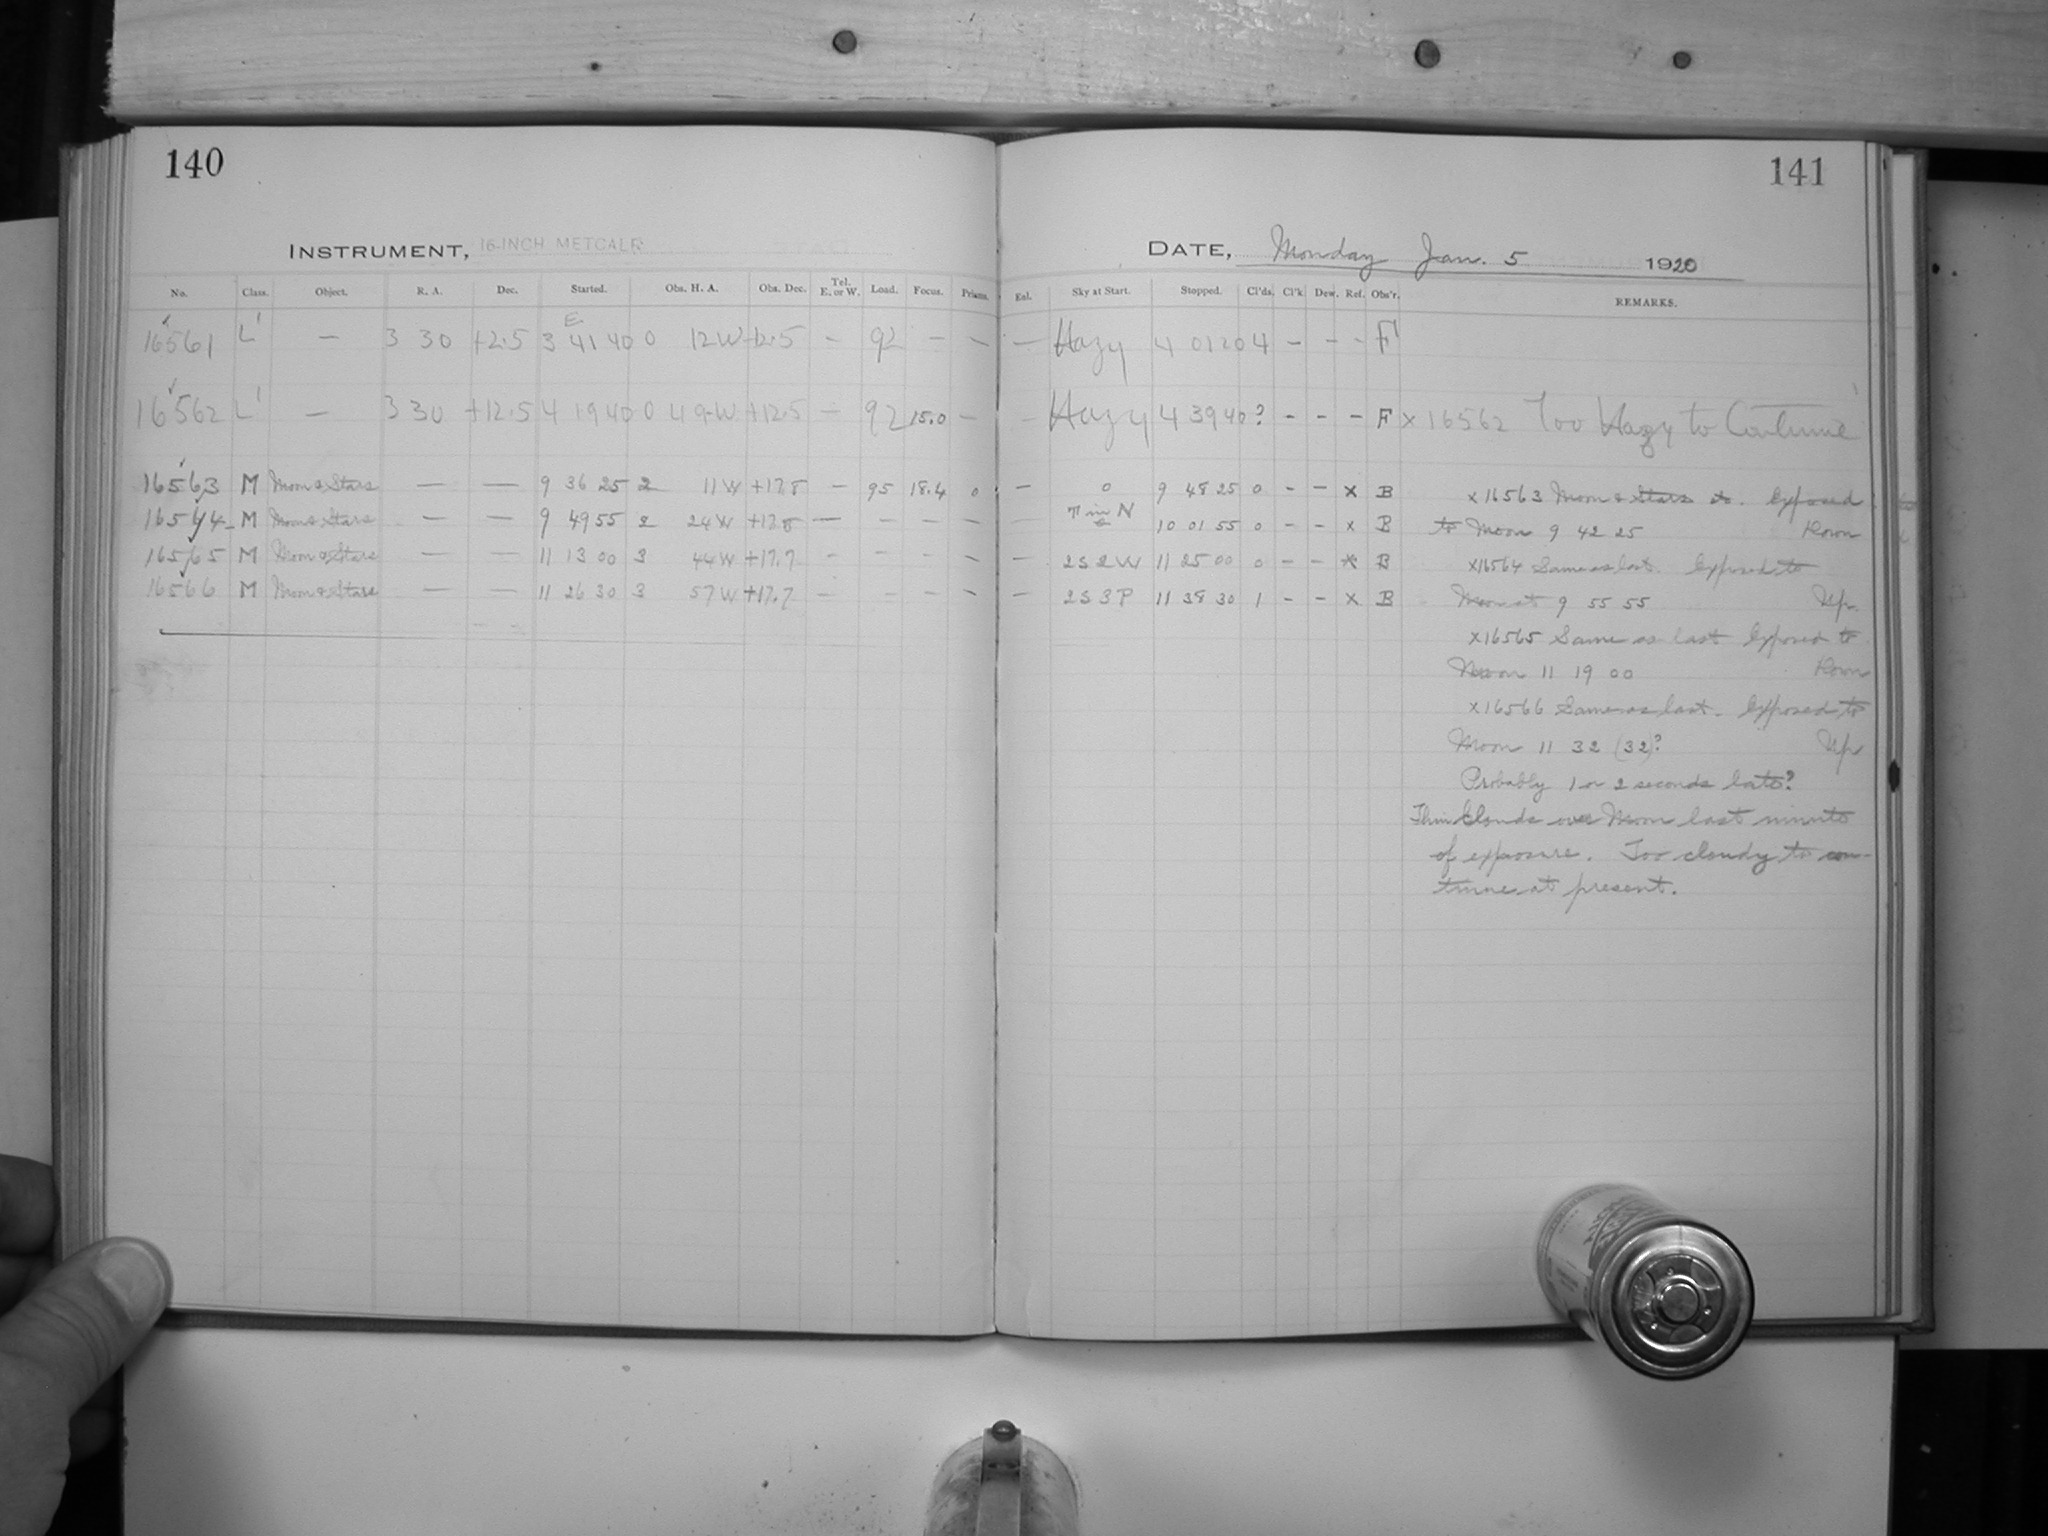 140
INSTRUMENT, 16-INCH METCALF
No. Class. Object. R. A. Dec. Started. Obs. H. A. Obs. Dec. Tel. E. or W. Load. Focus. Prisms.
E
16561 L' — 3 30 +2.5 3 41 40 0 12W +2.5 – 92 – –
16562 L' — 3 30 +12.5 4 19 40 0 49W +12.5 – 92 15.0 –
16563 M Moon & Stars — — 9 36 25 2 11W +17.8 – 95 18.4 0
16564 M Moon & Stars — — 9 49 55 2 24W +17.8 — – – –
16565 M Moon & Stars — — 11 13 00 3 44W +17.7 – – – –
16566 M Moon & Stars — — 11 26 30 3 57W +17.7 – – – –
141
DATE, Monday Jan. 5 1920
Exl. Sky at Start. Stopped. Cl'ds. Cl'k. Dew. Ref. Obs'r. REMARKS.
— Hazy 4 01 20 4 – – – F
– Hazy 4 39 40 ? – – – F x 16562 Too Hazy to Continue
— 0 9 48 25 0 – – x B x16563 Moon & Stars Exposed
in N 10 01 55 0 – – x B to Moon 9 42 25 Down
– 2S2W 11 25 00 0 – – x B x16564 Same as last. Exposed to
– 2S3P 11 38 30 1 – – x B Moon at 9 55 55 Up.
x16565 Same as last Exposed to
Moon 11 19 00 Down
x16566 Same as last. Exposed to
Moon 11 32 (32)? Up
Probably 1 or 2 seconds late?
Thin Clouds over Moon last minute
of exposure. Too cloudy to con-
tinue at present.